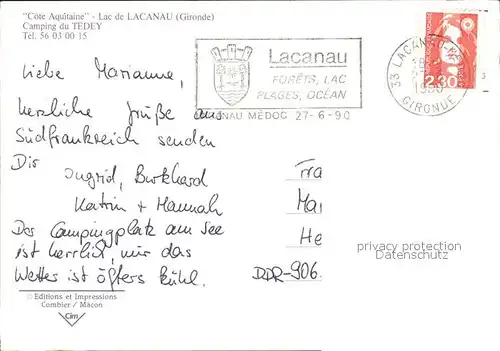 "Côte Aquitaine" - Lac de LACANAU (Gironde)
Camping du TEDEY
Tél. 56 03 00 15
Lacanau
FORÊTS, LAC
PLAGES, OCÉAN
NAU MÉDOC 27-6-90
33 LACANAU-MÉDOC
1990
GIRONDE
2.30
Liebe Marianne,
herzliche Grüße aus
Südfrankreich senden
Dir
Ingrid, Burkhard
Katrin + Hannah
Der Campingplatz am See
ist herrlich, nur das
Wetter ist öfters kühl.
Fra
Mar
He
DDR-906
privacy protection
Datenschutz
© Editions et Impressions
Combier / Mâcon
Cim